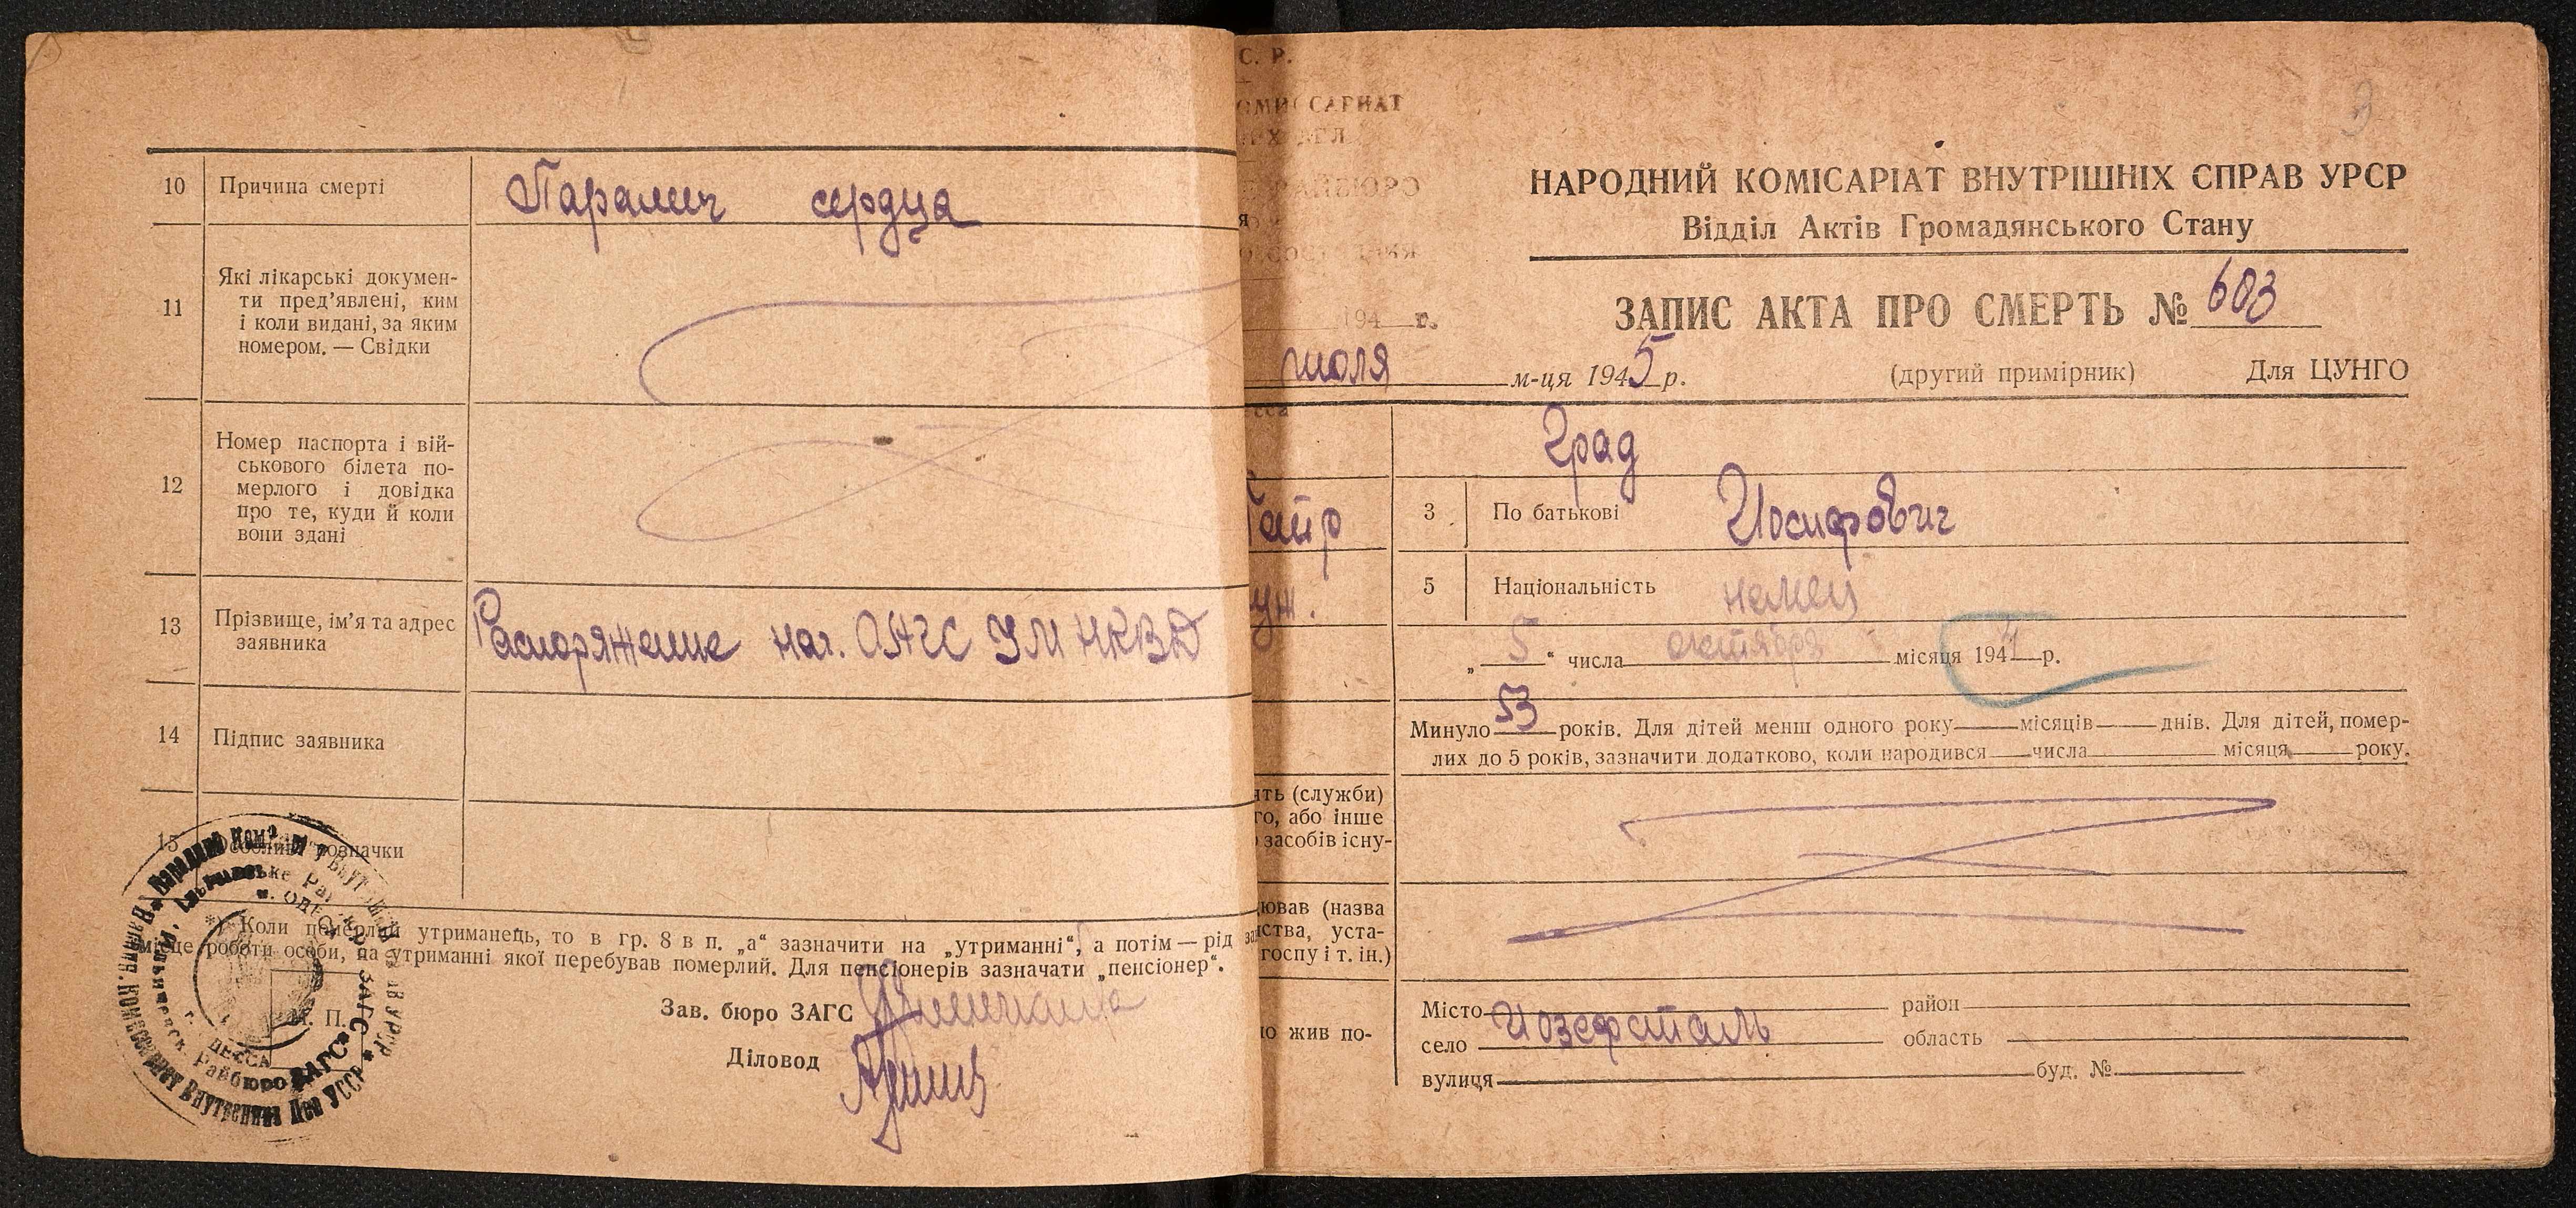 10 Причина смерті Паралич сердца
11 Які лікарські докумен-
ти пред’явлені, ким
і коли видані, за яким
номером. — Свідки
12 Номер паспорта і вій-
ськового білета по-
мерлого і довідка
про те, куди й коли
вони здані
13 Прізвище, ім’я та адрес
заявника
Распоряжение нач. ОАГС УМ НКВД
14 Підпис заявника
15 Особливі позначки
*) Коли померлий утриманець, то в гр. 8 в п. „а“ зазначити на „утриманні“, а потім — рід
місце роботи особи, на утриманні якої перебував померлий. Для пенсіонерів зазначати „пенсіонер“.
Зав. бюро ЗАГС
Діловод
М. П.
С. Р.
НАРОДНИЙ КОМІСАРІАТ ВНУТРІШНІХ СПРАВ УРСР
Відділ Актів Громадянського Стану
ЗАПИС АКТА ПРО СМЕРТЬ № 603
194 г.
июля м-ця 1945 р. (другий примірник) Для ЦУНГО
Град
3 По батькові Иосифович
5 Національність немец
уж.
„ 5 “ числа октября місяця 1941 р.
Минуло 53 років. Для дітей менш одного року місяців днів. Для дітей, помер-
лих до 5 років, зазначити додатково, коли народився числа місяця року.
ять (служби)
го, або інше
засобів існу-
ював (назва
ства, уста-
госпу і т. ін.)
но жив по-
Місто район
село Иозефсталь область
вулиця буд. №